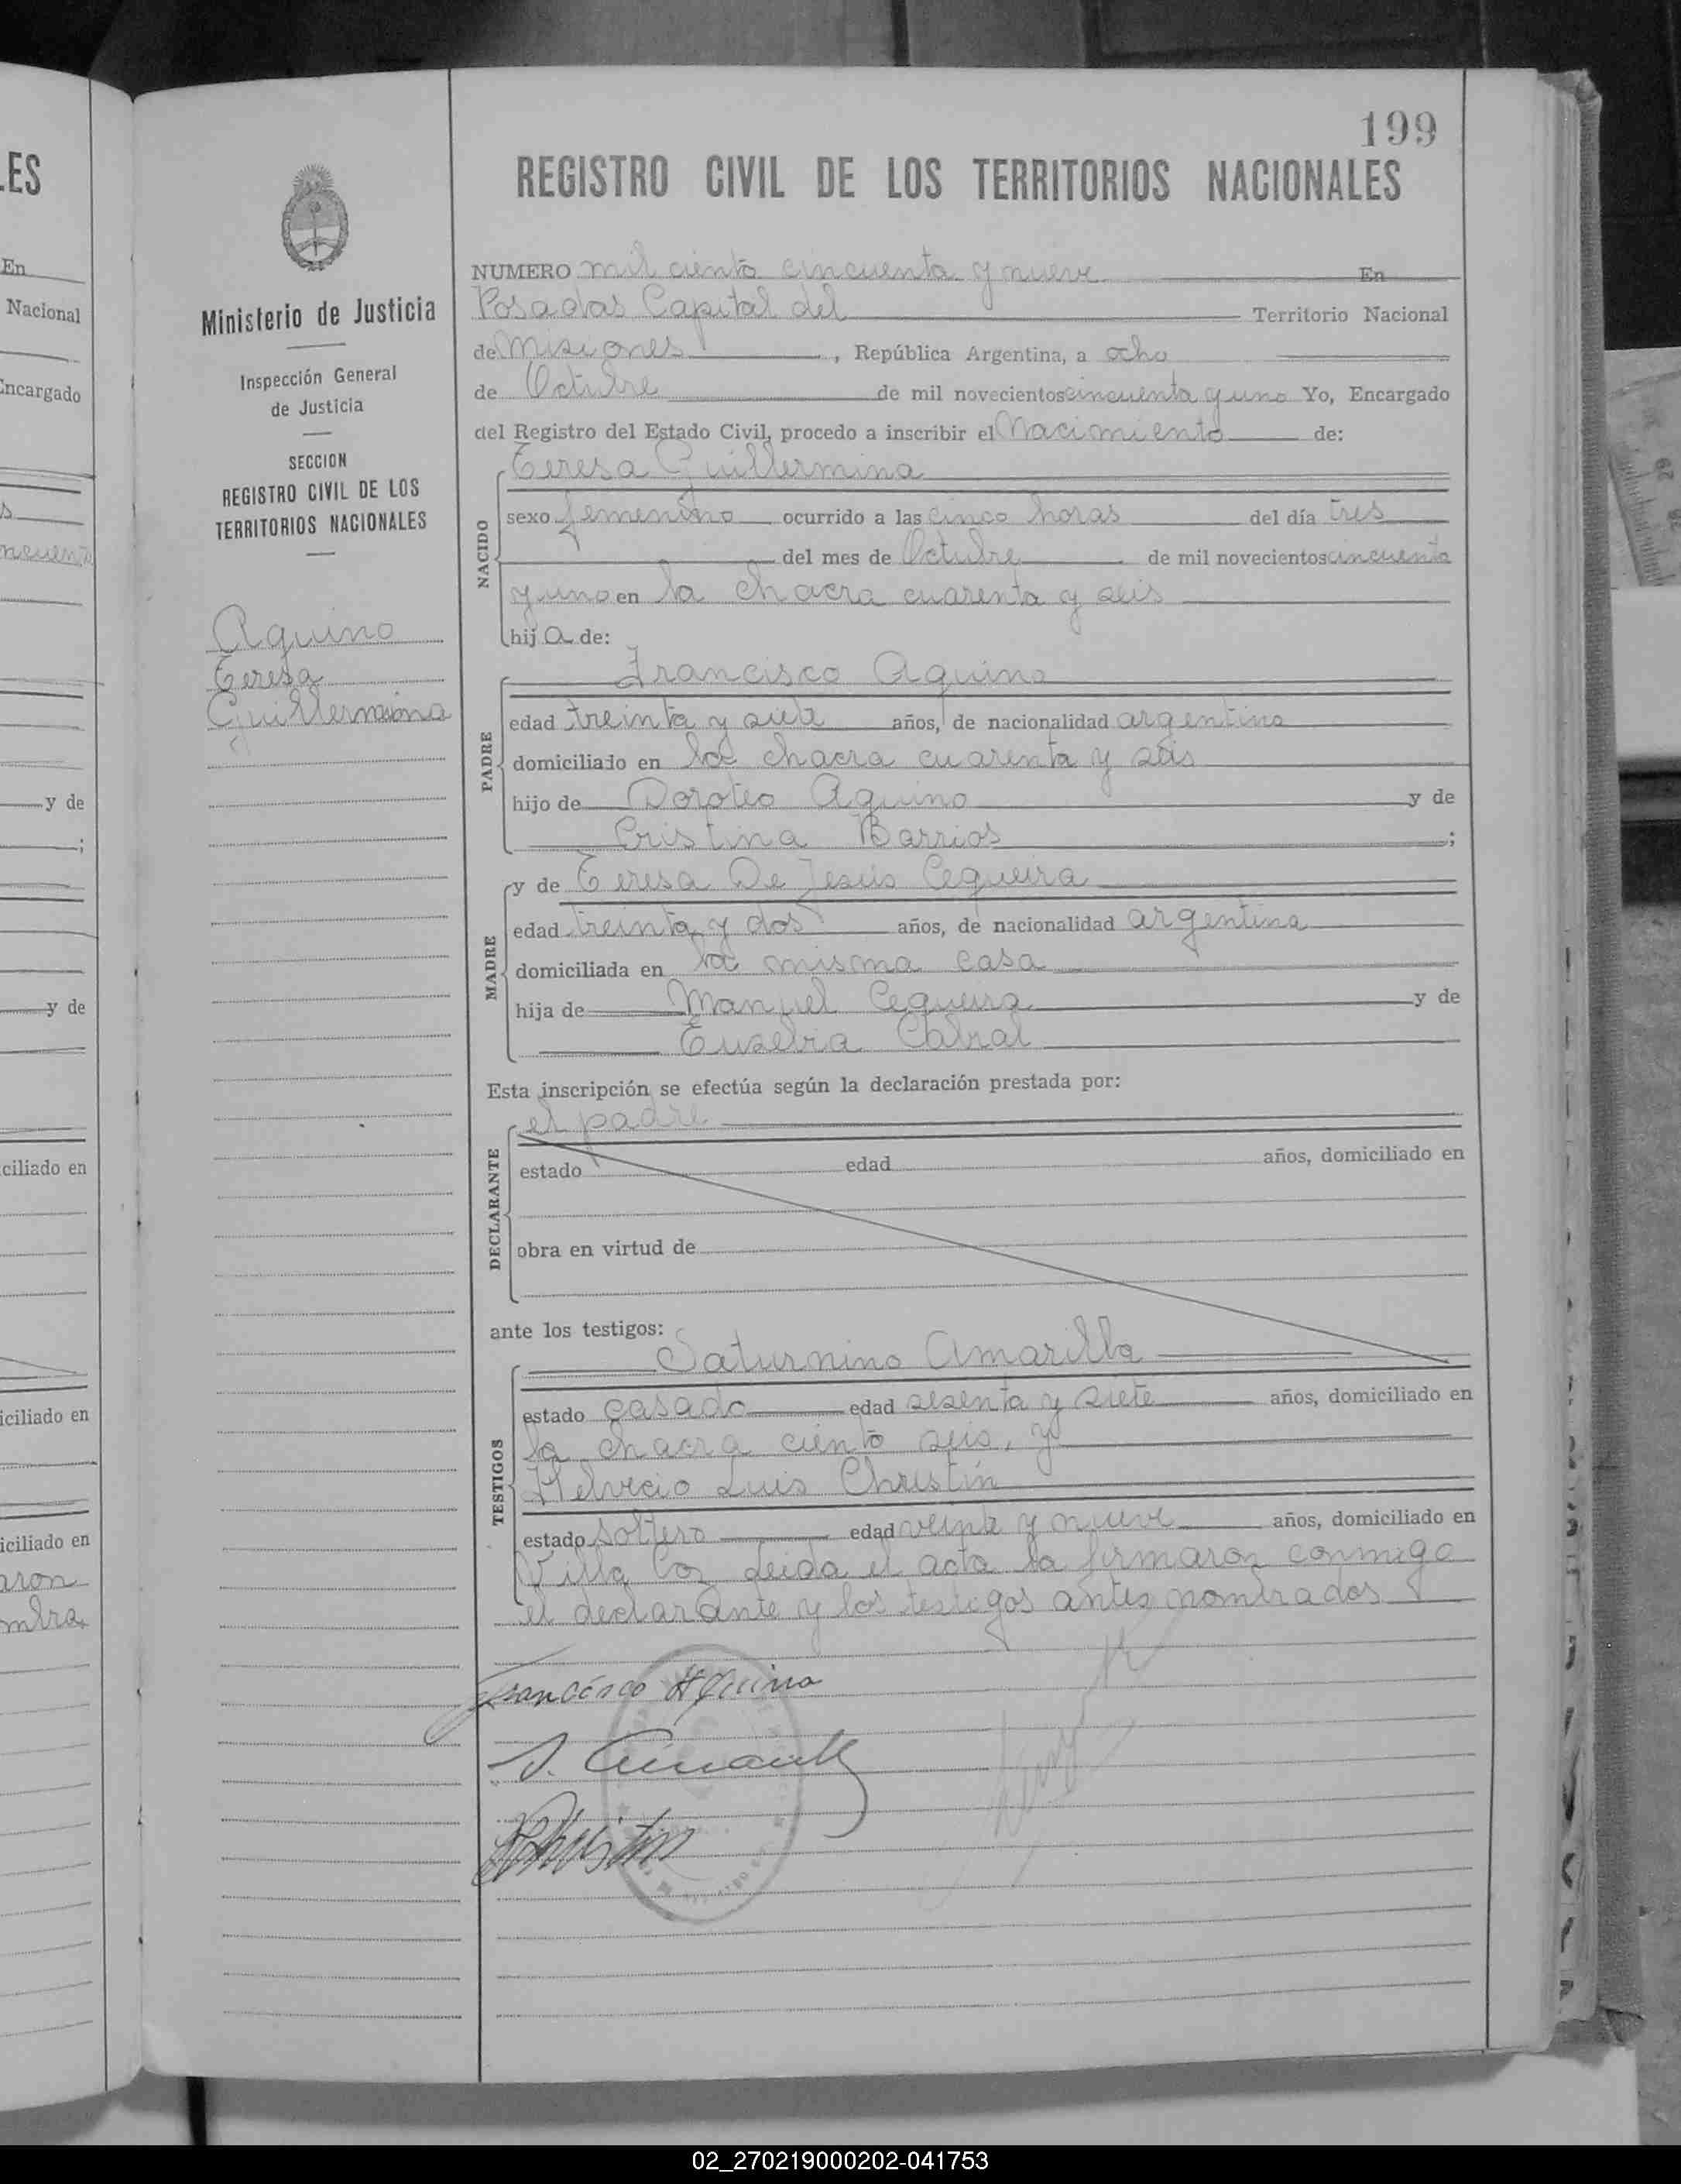 199
REGISTRO CIVIL DE LOS TERRITORIOS NACIONALES
Ministerio de Justicia
Inspección General
de Justicia
SECCION
REGISTRO CIVIL DE LOS
TERRITORIOS NACIONALES
Aquino
Teresa
Guillermina
NUMERO mil ciento cincuenta y nueve En
Posadas Capital del Territorio Nacional
de Misiones, República Argentina, a ocho
de Octubre de mil novecientos cincuenta y uno Yo, Encargado
del Registro del Estado Civil, procedo a inscribir el Nacimiento de:
NACIDO
Teresa Guillermina
sexo femenino ocurrido a las cinco horas del día tres
del mes de Octubre de mil novecientos cincuenta
y uno en la chacra cuarenta y seis
hija de:
PADRE
Francisco Aquino
edad treinta y siete años, de nacionalidad argentina
domiciliado en la chacra cuarenta y seis
hijo de Doroteo Aquino y de
Cristina Barrios;
MADRE
y de Teresa De Jesús Cequeira
edad treinta y dos años, de nacionalidad argentina
domiciliada en la misma casa
hija de Manuel Cequeira y de
Eusebia Cabral
Esta inscripción se efectúa según la declaración prestada por:
DECLARANTE
el padre
estado edad años, domiciliado en
obra en virtud de
ante los testigos:
TESTIGOS
Saturnino Amarilla
estado casado edad sesenta y siete años, domiciliado en
la chacra ciento seis, y
Helvecio Luis Christin
estado soltero edad veinte y nueve años, domiciliado en
Villa leida el acta la firmaron conmigo
el declarante y los testigos antes nombrados
Francisco Aquino
S. Amarilla
Christin
ES
En
Nacional
Encargado
y de
;
y de
ciliado en
iciliado en
iciliado en
aron
mbra
02_270219000202-041753